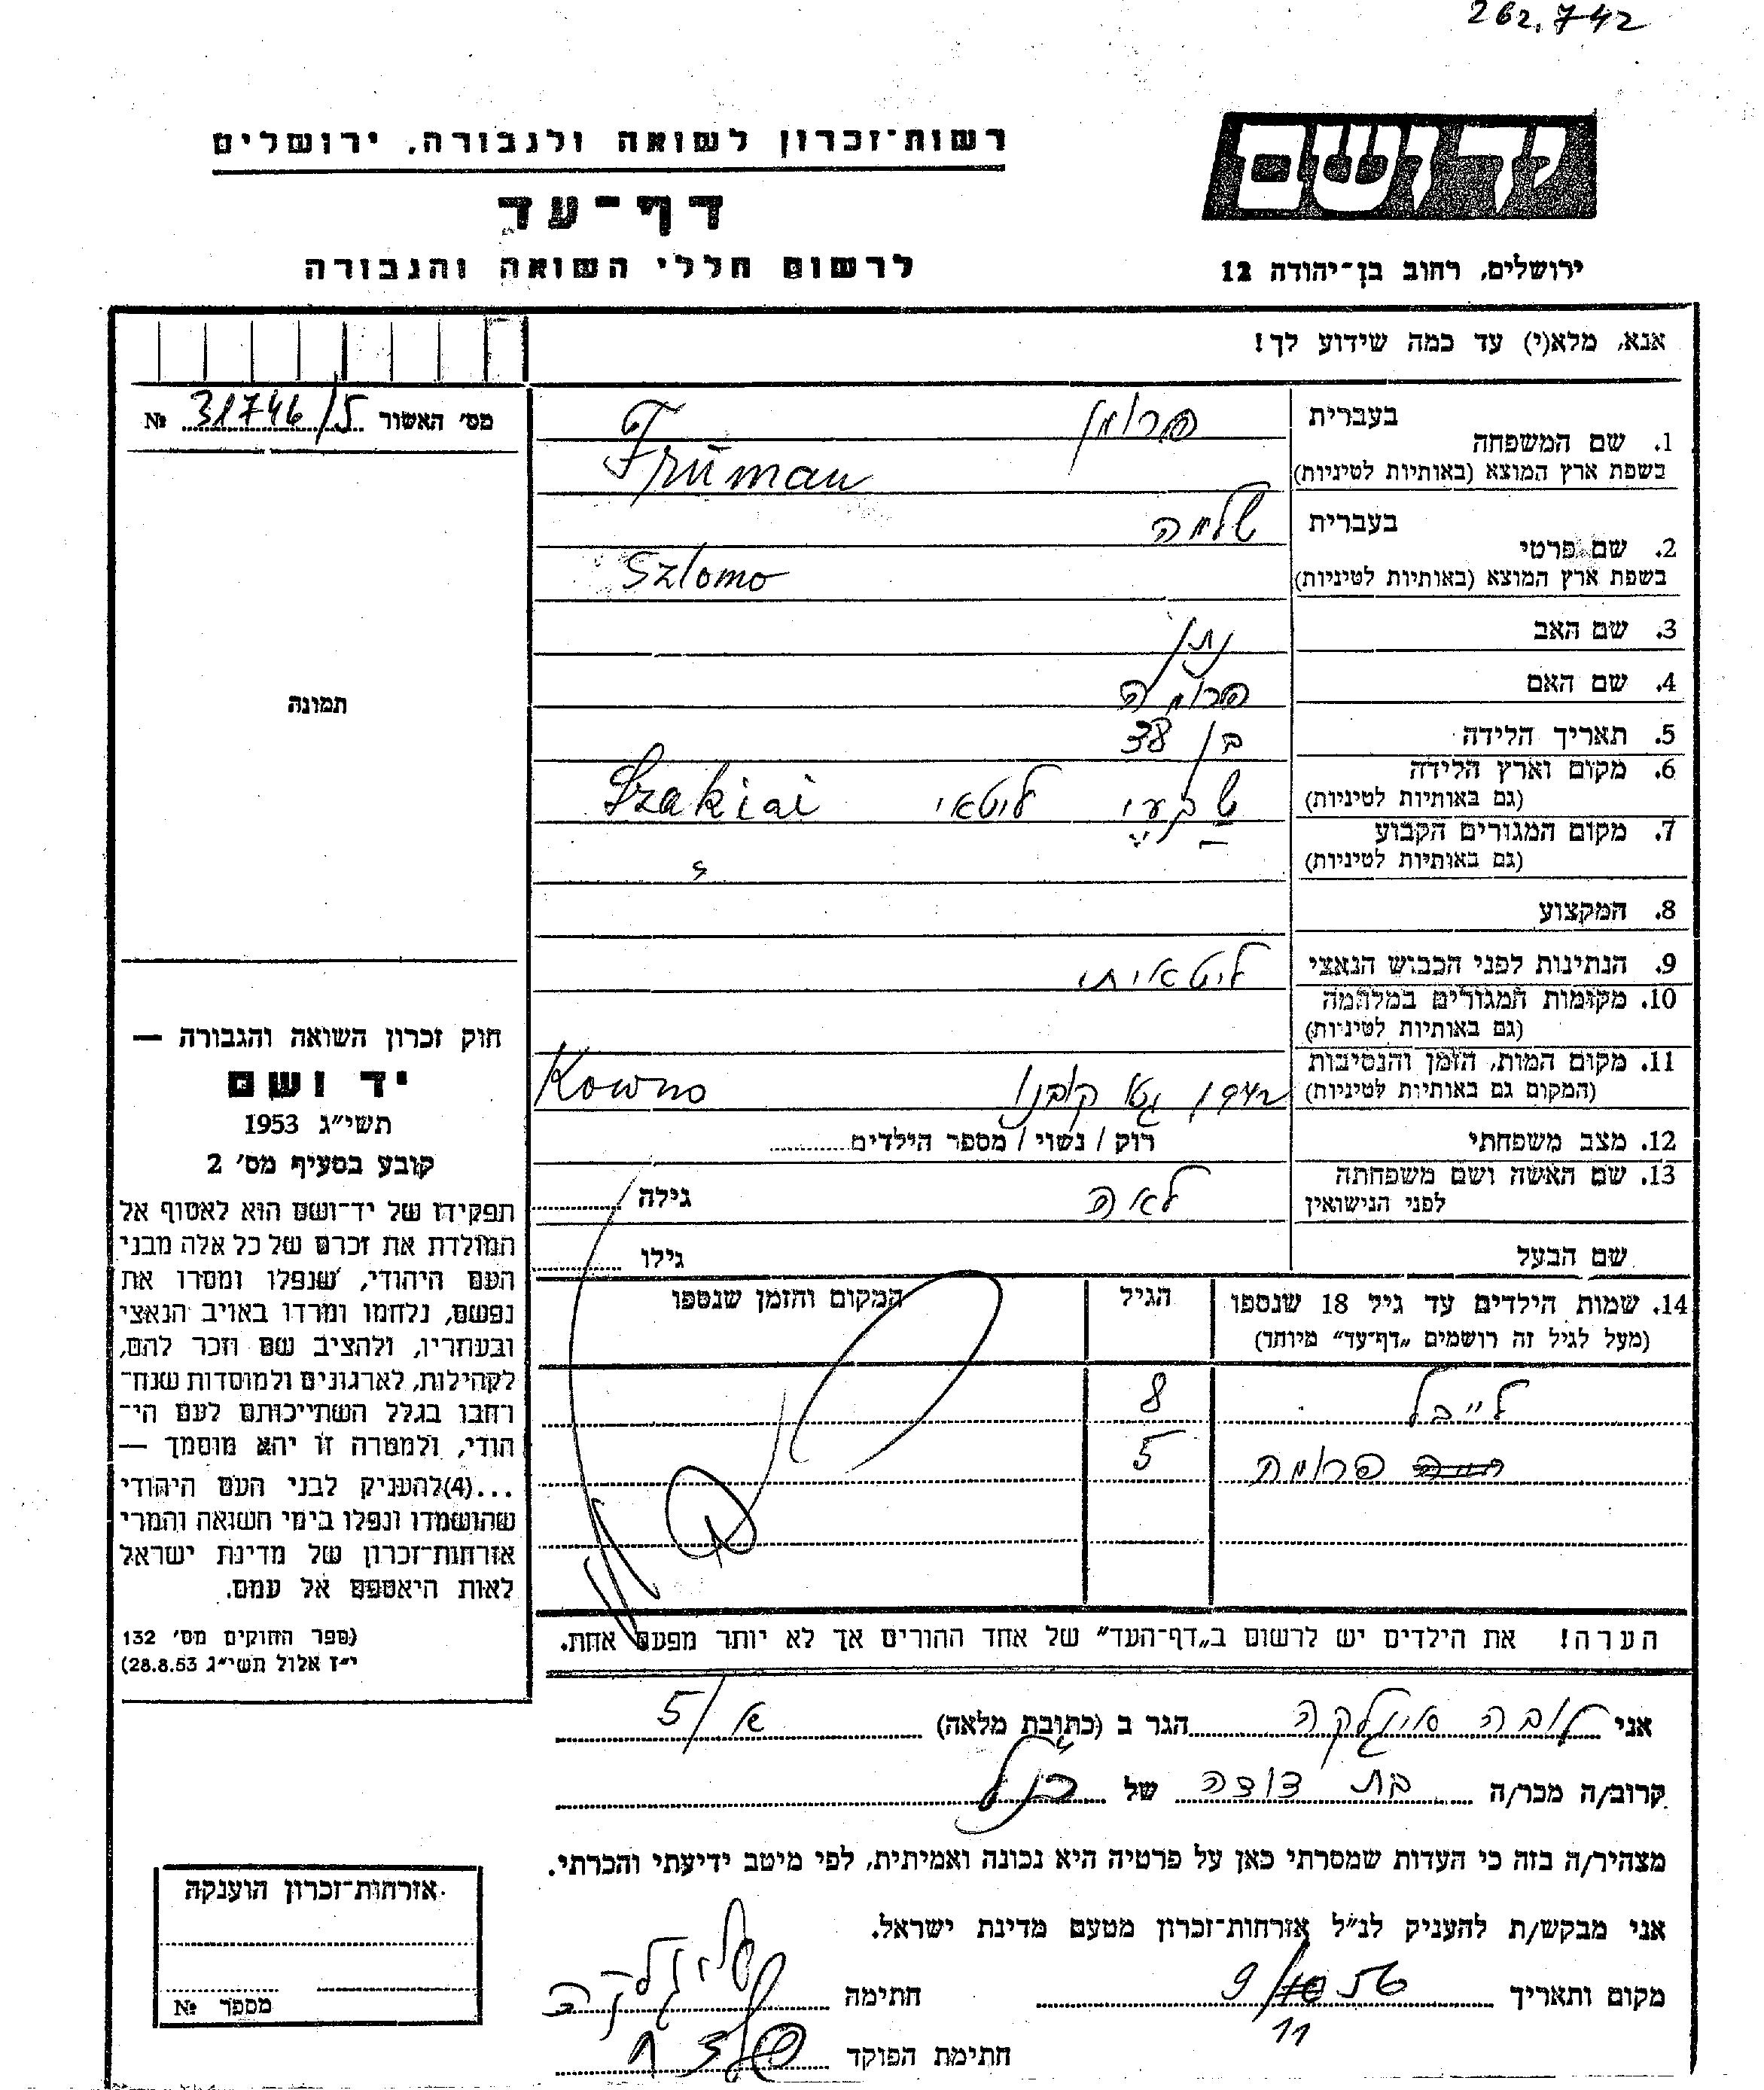 262.742
יד ושם
רשות־זכרון לשואה ולגבורה, ירושלים
דף־עד
לרשום חללי השואה והגבורה
ירושלים, רחוב בן־יהודה 12
אנא, מלא(י) עד כמה שידוע לך!
מס׳ האשור 31746/5 №
תמונה
1. שם המשפחה בעברית פרומן
בשפת ארץ המוצא (באותיות לטיניות) Frūman
2. שם פרטי בעברית שלמה
בשפת ארץ המוצא (באותיות לטיניות) Szlomo
3. שם האב נתן
4. שם האם פרומה
5. תאריך הלידה בן 38
6. מקום וארץ הלידה
(גם באותיות לטיניות) ליטאי Szakiai
7. מקום המגורים הקבוע
(גם באותיות לטיניות)
8. המקצוע
9. הנתינות לפני הכבוש הנאצי ליטאיתי
10. מקומות המגורים במלחמה
(גם באותיות לטיניות)
11. מקום המות, הזמן והנסיבות
(המקום גם באותיות לטיניות) 1942 גטו קובנו Kowno
12. מצב משפחתי רוק / נשוי / מספר הילדים
13. שם האשה ושם משפחתה
לפני הנישואין לאה גילה
שם הבעל גילו
14. שמות הילדים עד גיל 18 שנספו הגיל המקום והזמן שנספו
(מעל לגיל זה רושמים „דף־עד״ מיוחד)
לייבל 8
פרומה 5
הערה! את הילדים יש לרשום ב„דף־העד״ של אחד ההורים אך לא יותר מפעם אחת.
חוק זכרון השואה והגבורה —
יד ושם
תשי״ג 1953
קובע בסעיף מס׳ 2
תפקידו של יד־ושם הוא לאסוף אל
המולדת את זכרם של כל אלה מבני
העם היהודי, שנפלו ומסרו את
נפשם, נלחמו ומרדו באויב הנאצי
ובעוזריו, ולהציב שם וזכר להם,
לקהילות, לארגונים ולמוסדות שנח־
רחבו בגלל השתייכותם לעם הי־
הודי, ולמטרה זו יהא מוסמך —
...(4) להעניק לבני העם היהודי
שהושמדו ונפלו בימי השואה והמרי
אזרחות־זכרון של מדינת ישראל
לאות היאספם אל עמם.
(ספר החוקים מס׳ 132
י״ז אלול תשי״ג 28.8.53)
אני לובה הגר ב (כתובת מלאה)
קרוב/ה מכר/ה בת דודה של הנ״ל
מצהיר/ה בזה כי העדות שמסרתי כאן על פרטיה היא נכונה ואמיתית, לפי מיטב ידיעתי והכרתי.
אני מבקש/ת להעניק לנ״ל אזרחות־זכרון מטעם מדינת ישראל.
מקום ותאריך 9/11 56 חתימה
חתימת הפוקד
אזרחות־זכרון הוענקה
מספר №